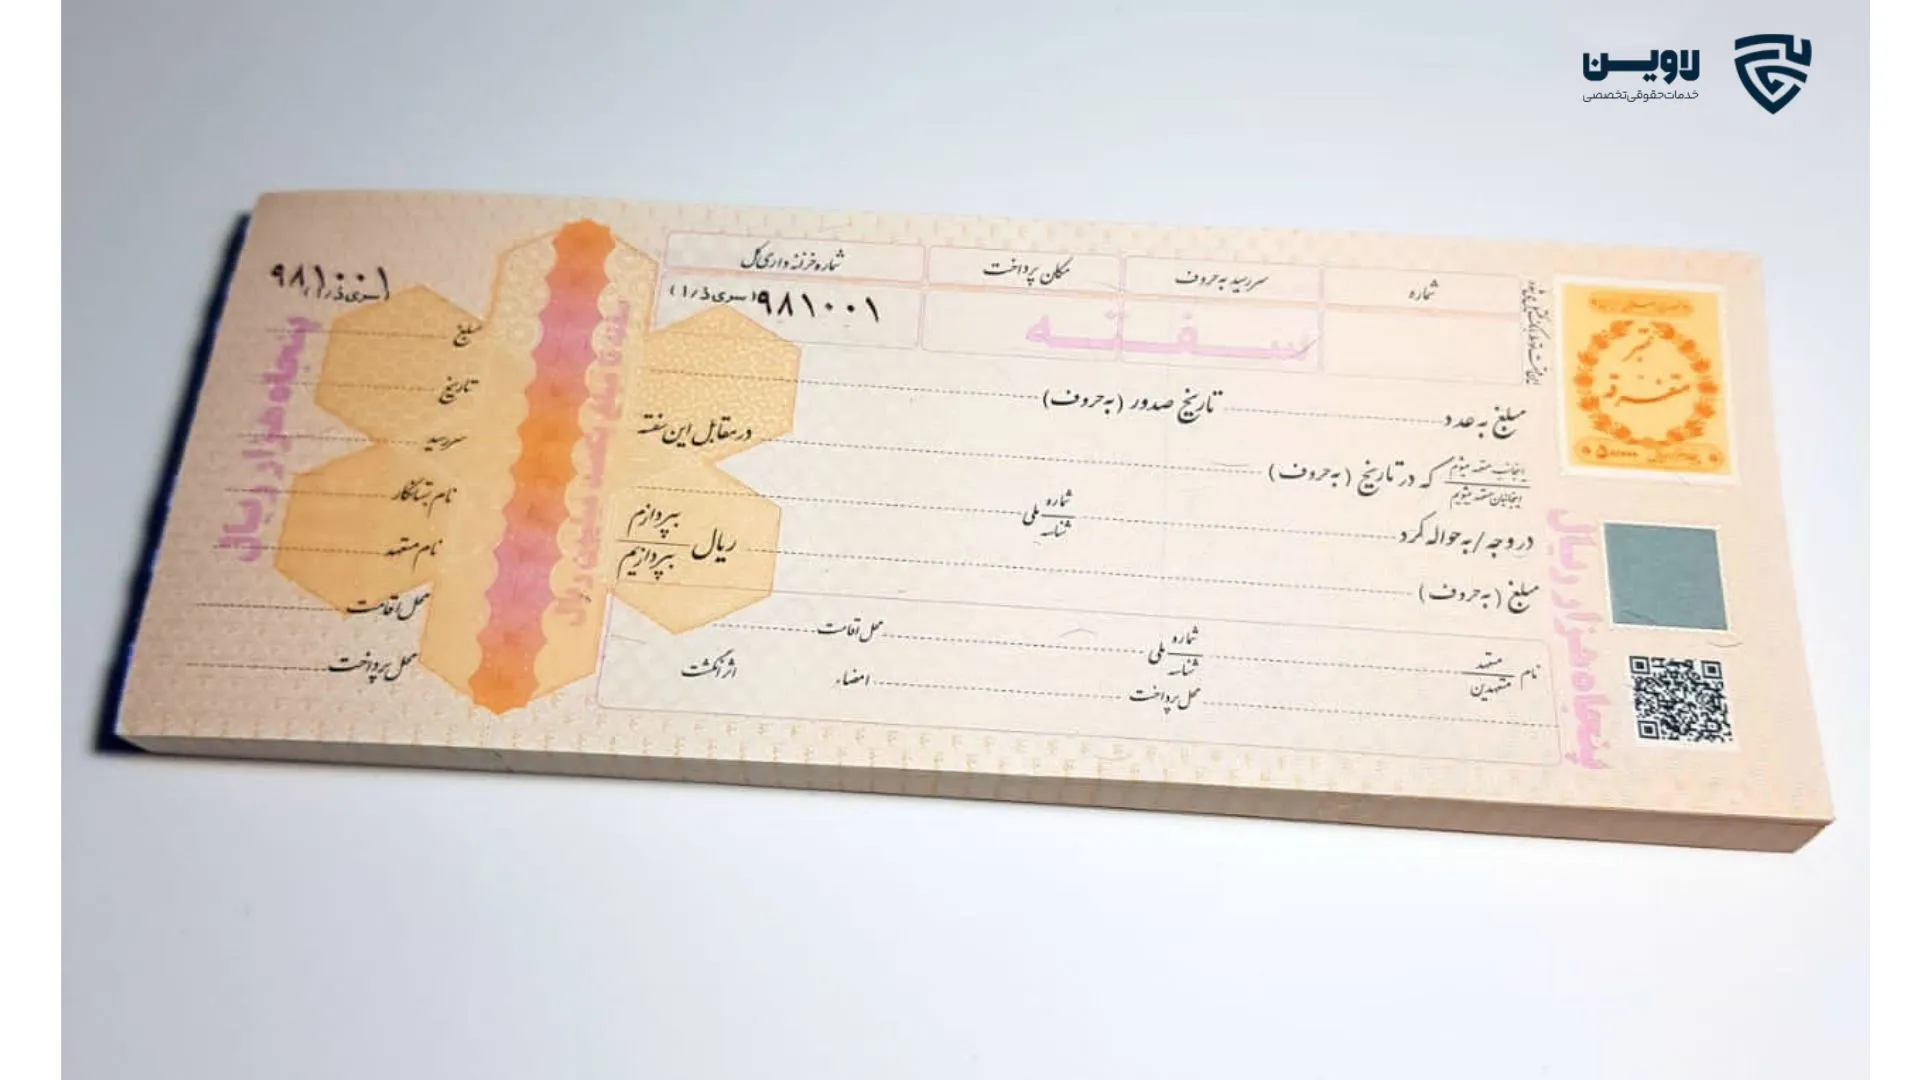 لاوین
خدمات حقوقی تخصصی
شماره
سررسید به حروف
مکان پرداخت
شماره خزانه داری کل
سفته
(سری ذ/۱) ۹۸۱۰۰۱
مبلغ به عدد
تاریخ صدور (به حروف)
در مقابل این سفته
اینجانب متعهد میشوم
اینجانبان متعهد میشویم
که در تاریخ (به حروف)
در وجه / به حواله کرد
شماره
شناسه
ملی
مبلغ (به حروف)
ریال
بپردازم
بپردازیم
نام
متعهد
متعهدین
شماره
شناسه
ملی
محل اقامت
محل پرداخت
امضاء
اثر انگشت
تمبر
متفرقه
پنجاه هزار ریال
سفته تا مبلغ یکصد میلیون ریال
۹۸۱۰۰۱
(سری ذ/۱)
مبلغ
تاریخ
سررسید
نام بستانکار
نام متعهد
محل اقامت
محل پرداخت
پنجاه هزار ریال